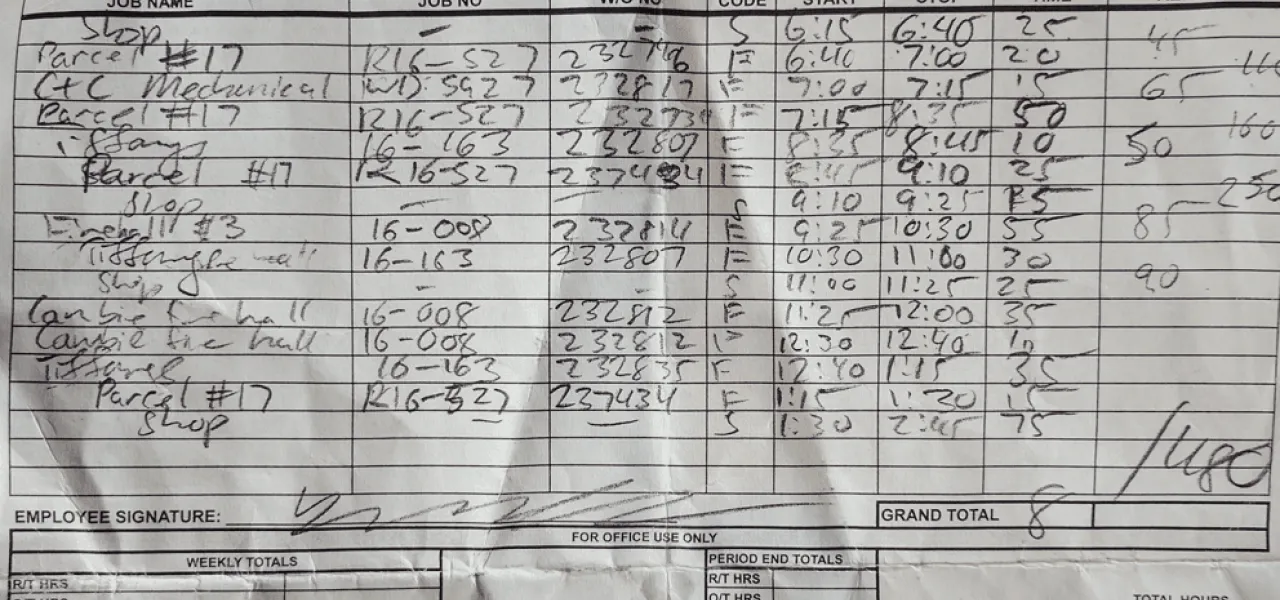 JOB NAME JOB NO W/O NO CODE START STOP TIME
Shop - - S 6:15 6:40 25 45
Parcel #17 R16-527 F 6:40 7:00 20
C+C Mechanical 5927 232817 F 7:00 7:15 15 65
Parcel #17 R16-527 F 7:15 8:35 50 160
Tiffanys 16-163 232807 F 8:35 8:45 10 50
Parcel #17 R16-527 237434 F 8:45 9:10 25
Shop - - S 9:10 9:25 15 250
Firehall #3 16-008 232814 F 9:25 10:30 55 85
16-163 232807 F 10:30 11:00 30
Shop - - S 11:00 11:25 25 90
Cambie fire hall 16-008 232812 F 11:25 12:00 35
Cambie fire hall 16-008 232812 F 12:30 12:40 10
Tiffanes 16-163 232835 F 12:40 1:15 35
Parcel #17 R16-527 237434 F 1:15 1:30 15
Shop — S 1:30 2:45 75
/480
EMPLOYEE SIGNATURE: GRAND TOTAL 8
FOR OFFICE USE ONLY
WEEKLY TOTALS PERIOD END TOTALS
R/T HRS R/T HRS
O/T HRS O/T HRS TOTAL HOURS